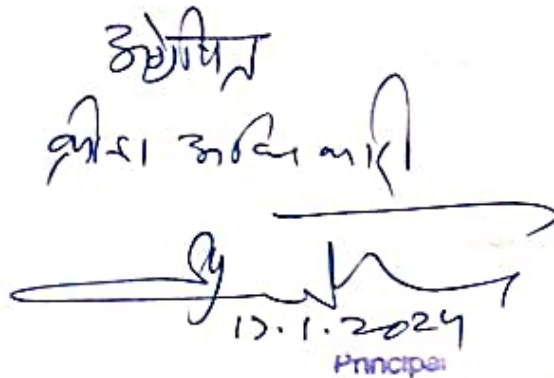 अग्रेषित
क्रीडा अधिकारी
17.1.2024
Principal